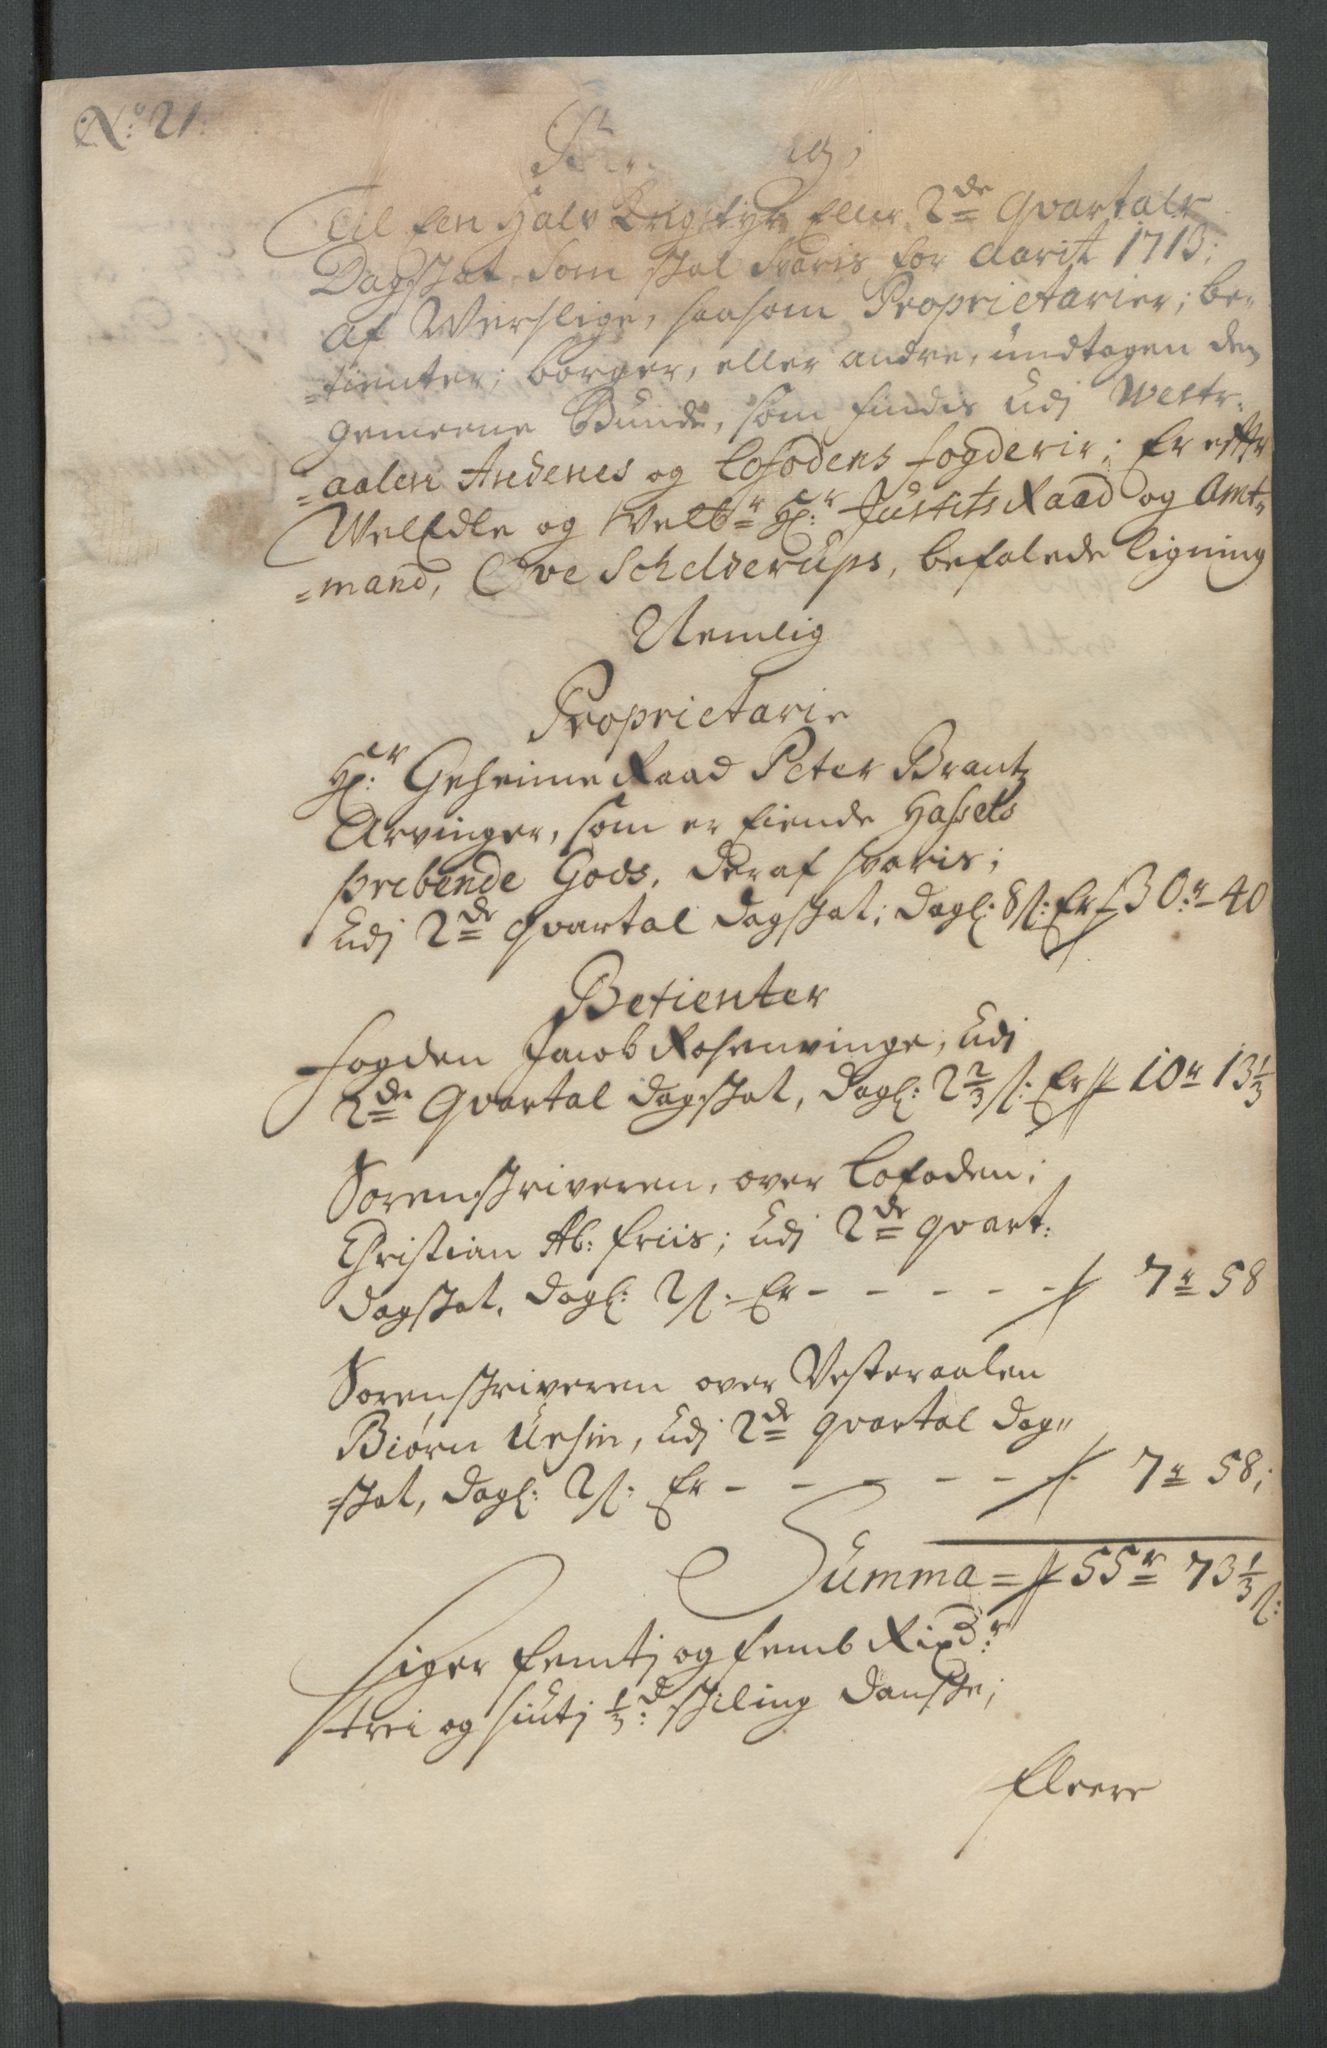 No: 21:
Til Een Halv Krigstyr Eller 2de Qvartals
Dagskat, som skal svaris for Aarit 1713;
af Werslige, saasom Proprietarier; be-
=tienter; borger, eller andre, undtagen den
gemeene Bunde, som findis udj Westr-
=aalen Andenes og Lofodens fogderie; Er efftr
WelEdle og Velbr Hr: Justits Raad og Amt-
=mand, Ove Schelderups, befalede ligning
Nemlig
Proprietarie
Hr: Geheime Raad Peter Brantz
Arvinger, som er Eiende Hassels
præbende Gods, deraf svaris;
udj 2de Qvartal dagskat; dagl: 8 s: Er 30r 40
Betienter
fogden Jacob Rosenvinge, udj
2de Qvartal dagskat, dagl: 2 2/3 s: Er 10r 13 1/3
Sorenskriveren, over Lofoden;
Christian Al: friis; udj 2de qvart:
dagskat, dagl: 2 s: Er - - - - - 7r 58
Sorenskriveren over Vesteraalen
Biørn Ursin, udj 2de qvartal dag-
=skat, dagl: 2 s: Er - - - - - - 7r 58;
Summa = 55r 73 1/3 s:
siger femti og femb Rixdr:
trei og siutj 1/3d: skiling danske;
fleere